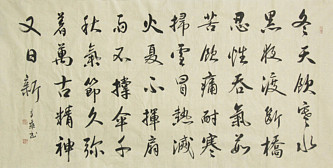 冬天飲寒水
黑夜渡斷橋
忍性吞氣茹
苦飲痛耐寒
掃雪冒熱滅
火夏不揮扇
雨不撐傘千
秋氣節久彌
著萬古精神
又日新